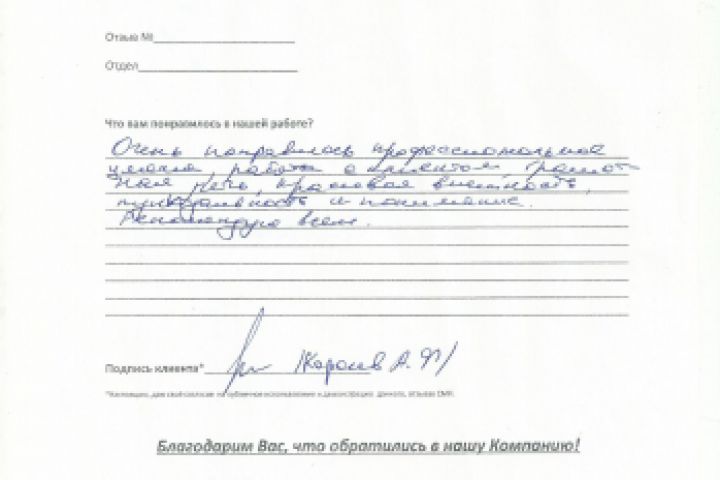 Отзыв №
Отдел
Что вам понравилось в нашей работе?
Очень понравилось профессиональное
работа с клиентом, грамот-
ная речь, красивая внешность,
пунктуальность и понимание.
Рекомендую всем.
Подпись клиента* /Королев А. /
*Настоящим, даю своё согласие на публичное использование и демонстрацию данного, отзыва СМИ.
Благодарим Вас, что обратились в нашу Компанию!